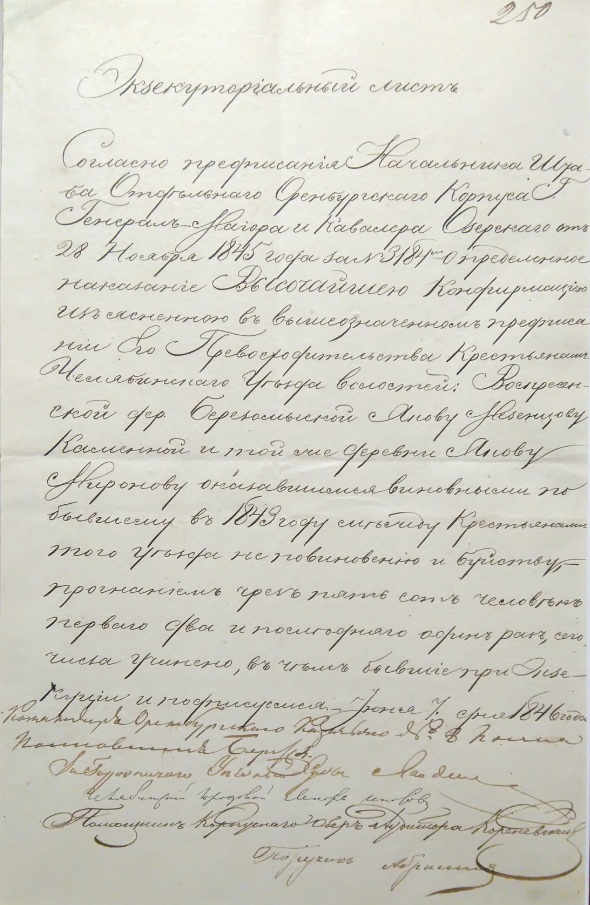 250
Экзекуторіальный листъ
Согласно предписанія Начальника Шта-
ба Отдѣльнаго Оренбургскаго Корпуса Г.
Генералъ-Маіора и Кавалера Озерскаго отъ
28 Ноября 1845 года за № 3184 опредѣленное
наказаніе Высочайшею Конфирмаціею
изъясненною въ вышеозначенномъ предписа
ніи Его Превосходительства Крестьянамъ
Челябинскаго Уѣзда волостей: Воскресен-
ской дер. Якову Мезенцову
Каменной и той же деревни Якову
Миронову оказавшимся виновными по
бывшему въ 1843 году между Крестьянами
того уѣзда неповиновенію и буйству,
прогнаніемъ чрезъ пять сотъ человѣкъ
перваго два и послѣдняго одинъ разъ, сего
числа учинено, въ чемъ бывшіе при Экзе-
куціи и подписуемся. Іюня 7 дня 1846 года
Оренбургскаго № 8
Помощникъ Корпуснаго Оберъ Аудитора
Поручикъ